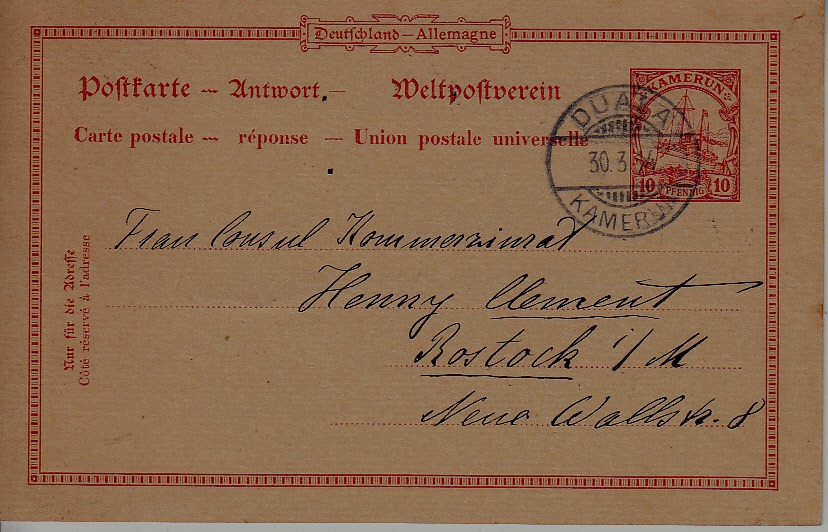 Deutschland – Allemagne
Postkarte – Antwort. – Weltpostverein
Carte postale – réponse – Union postale universelle
KAMERUN
10 PFENNIG 10
DUALA
30.3
KAMERUN
Nur für die Adresse
Côté réservé à l'adresse
Frau Consul Kommerzienrat
Henny Clement
Rostock i/M
Neue Wallstr. 8